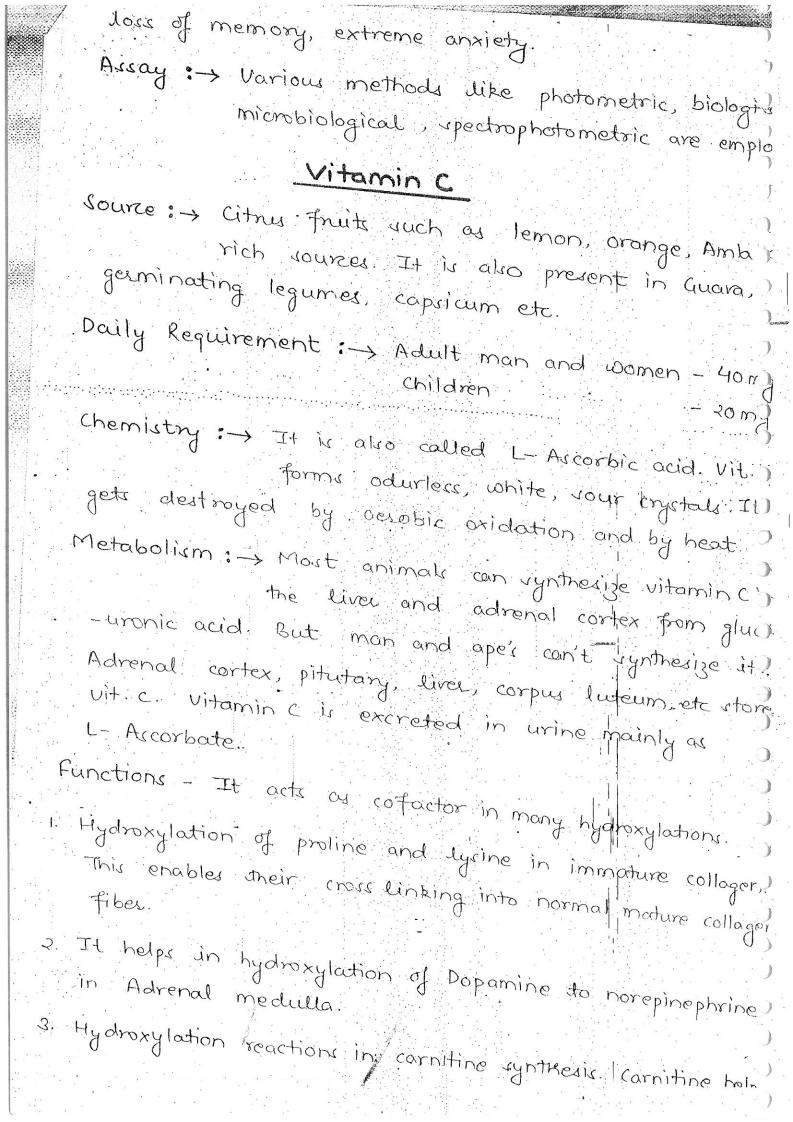 loss of memory, extreme anxiety.
Assay :→ Various methods like photometric, biologi
microbiological, spectrophotometric are emplo
Vitamin C
Source :→ Citrus fruits such as lemon, orange, Amla
rich sources. It is also present in Guava,
germinating legumes, capsicum etc.
Daily Requirement :→ Adult man and women - 40 m
Children - 20 mg
Chemistry :→ It is also called L-Ascorbic acid. Vit.
forms odurless, white, sour crystals. It
gets destroyed by aerobic oxidation and by heat.
Metabolism :→ Most animals can synthesize vitamin C
the liver and adrenal cortex from gluc
-uronic acid. But man and ape's can't synthesize it.
Adrenal cortex, pitutary, liver, corpus luteum, etc store
vit. C. Vitamin C is excreted in urine mainly as
L-Ascorbate.
Functions - It acts as cofactor in many hydroxylations.
1. Hydroxylation of proline and lysine in immature collagen,
This enables their cross linking into normal mature collagen
fiber.
2. It helps in hydroxylation of Dopamine to norepinephrine
in Adrenal medulla.
3. Hydroxylation reactions in carnitine synthesis. Carnitine